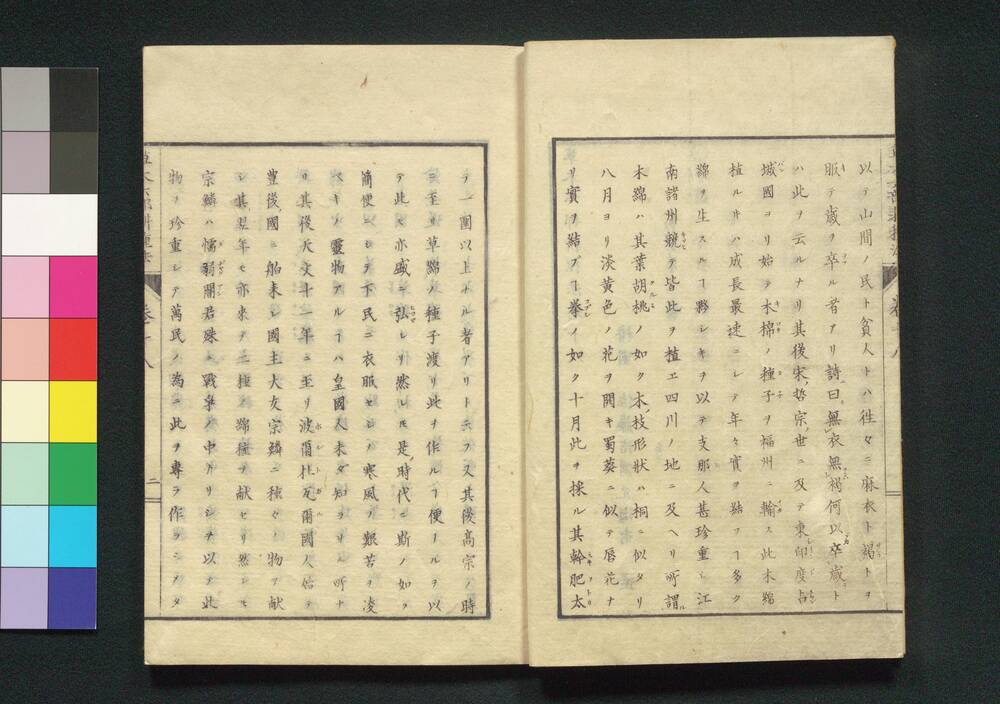 以テ山間ノ民ト貧人トハ往々ニ麻衣ト褐トヲ
服テ歳ヲ卒ル者アリ詩曰無衣無褐何以卒歳ト
ハ此ヲ云ルナリ其後宋哲宗世ニ及テ東印度占
城國ヨリ始テ木棉ノ種子ヲ福州ニ輸ス此木綿
植ル片ハ成長最速ニシテ年々實ヲ結フヿ多ク
綿ヲ生スルヿ夥シキヲ以テ支那人甚珍重シ江
南諸州競テ皆此ヲ植エ四川ノ地ニ及ヘリ所謂
木綿ハ其葉胡桃ノ如ク木枝形状ハ桐ニ似タリ
八月ヨリ淡黄色ノ花ヲ開キ蜀葵ニ似テ唇花ナ
リ實ヲ結ブヿ拳ノ如ク十月此ヲ採ル其幹肥太
テ一圍以上ナル者アリト云フ又其後高宗ノ時
ニ至リ草綿ノ種子渡リ此ヲ作ルヿ便ナルヲ以
テ此モ亦盛ニ弘レリ然レモ是時代ニ斯ノ如ク
簡便ニシテ下民ニ衣服セシメ寒風ノ艱苦ヲ凌
スキノ靈物アルヿハ皇國人未ダ知ラサル所ナ
リ其後天文十二年ニ至リ波爾杜瓦爾國人始テ
豊後國ニ船来シ國主大友宗鱗ニ種々ノ物ヲ献
シ其翌年モ亦来テ二種ノ綿種ヲ献セリ然レモ
宗鱗ハ懦弱闇君殊ニ戰爭ノ中ナリシヲ以テ此
物ヲ珍重シテ萬民ノ為ニ此ヲ專ラ作ラシメタ